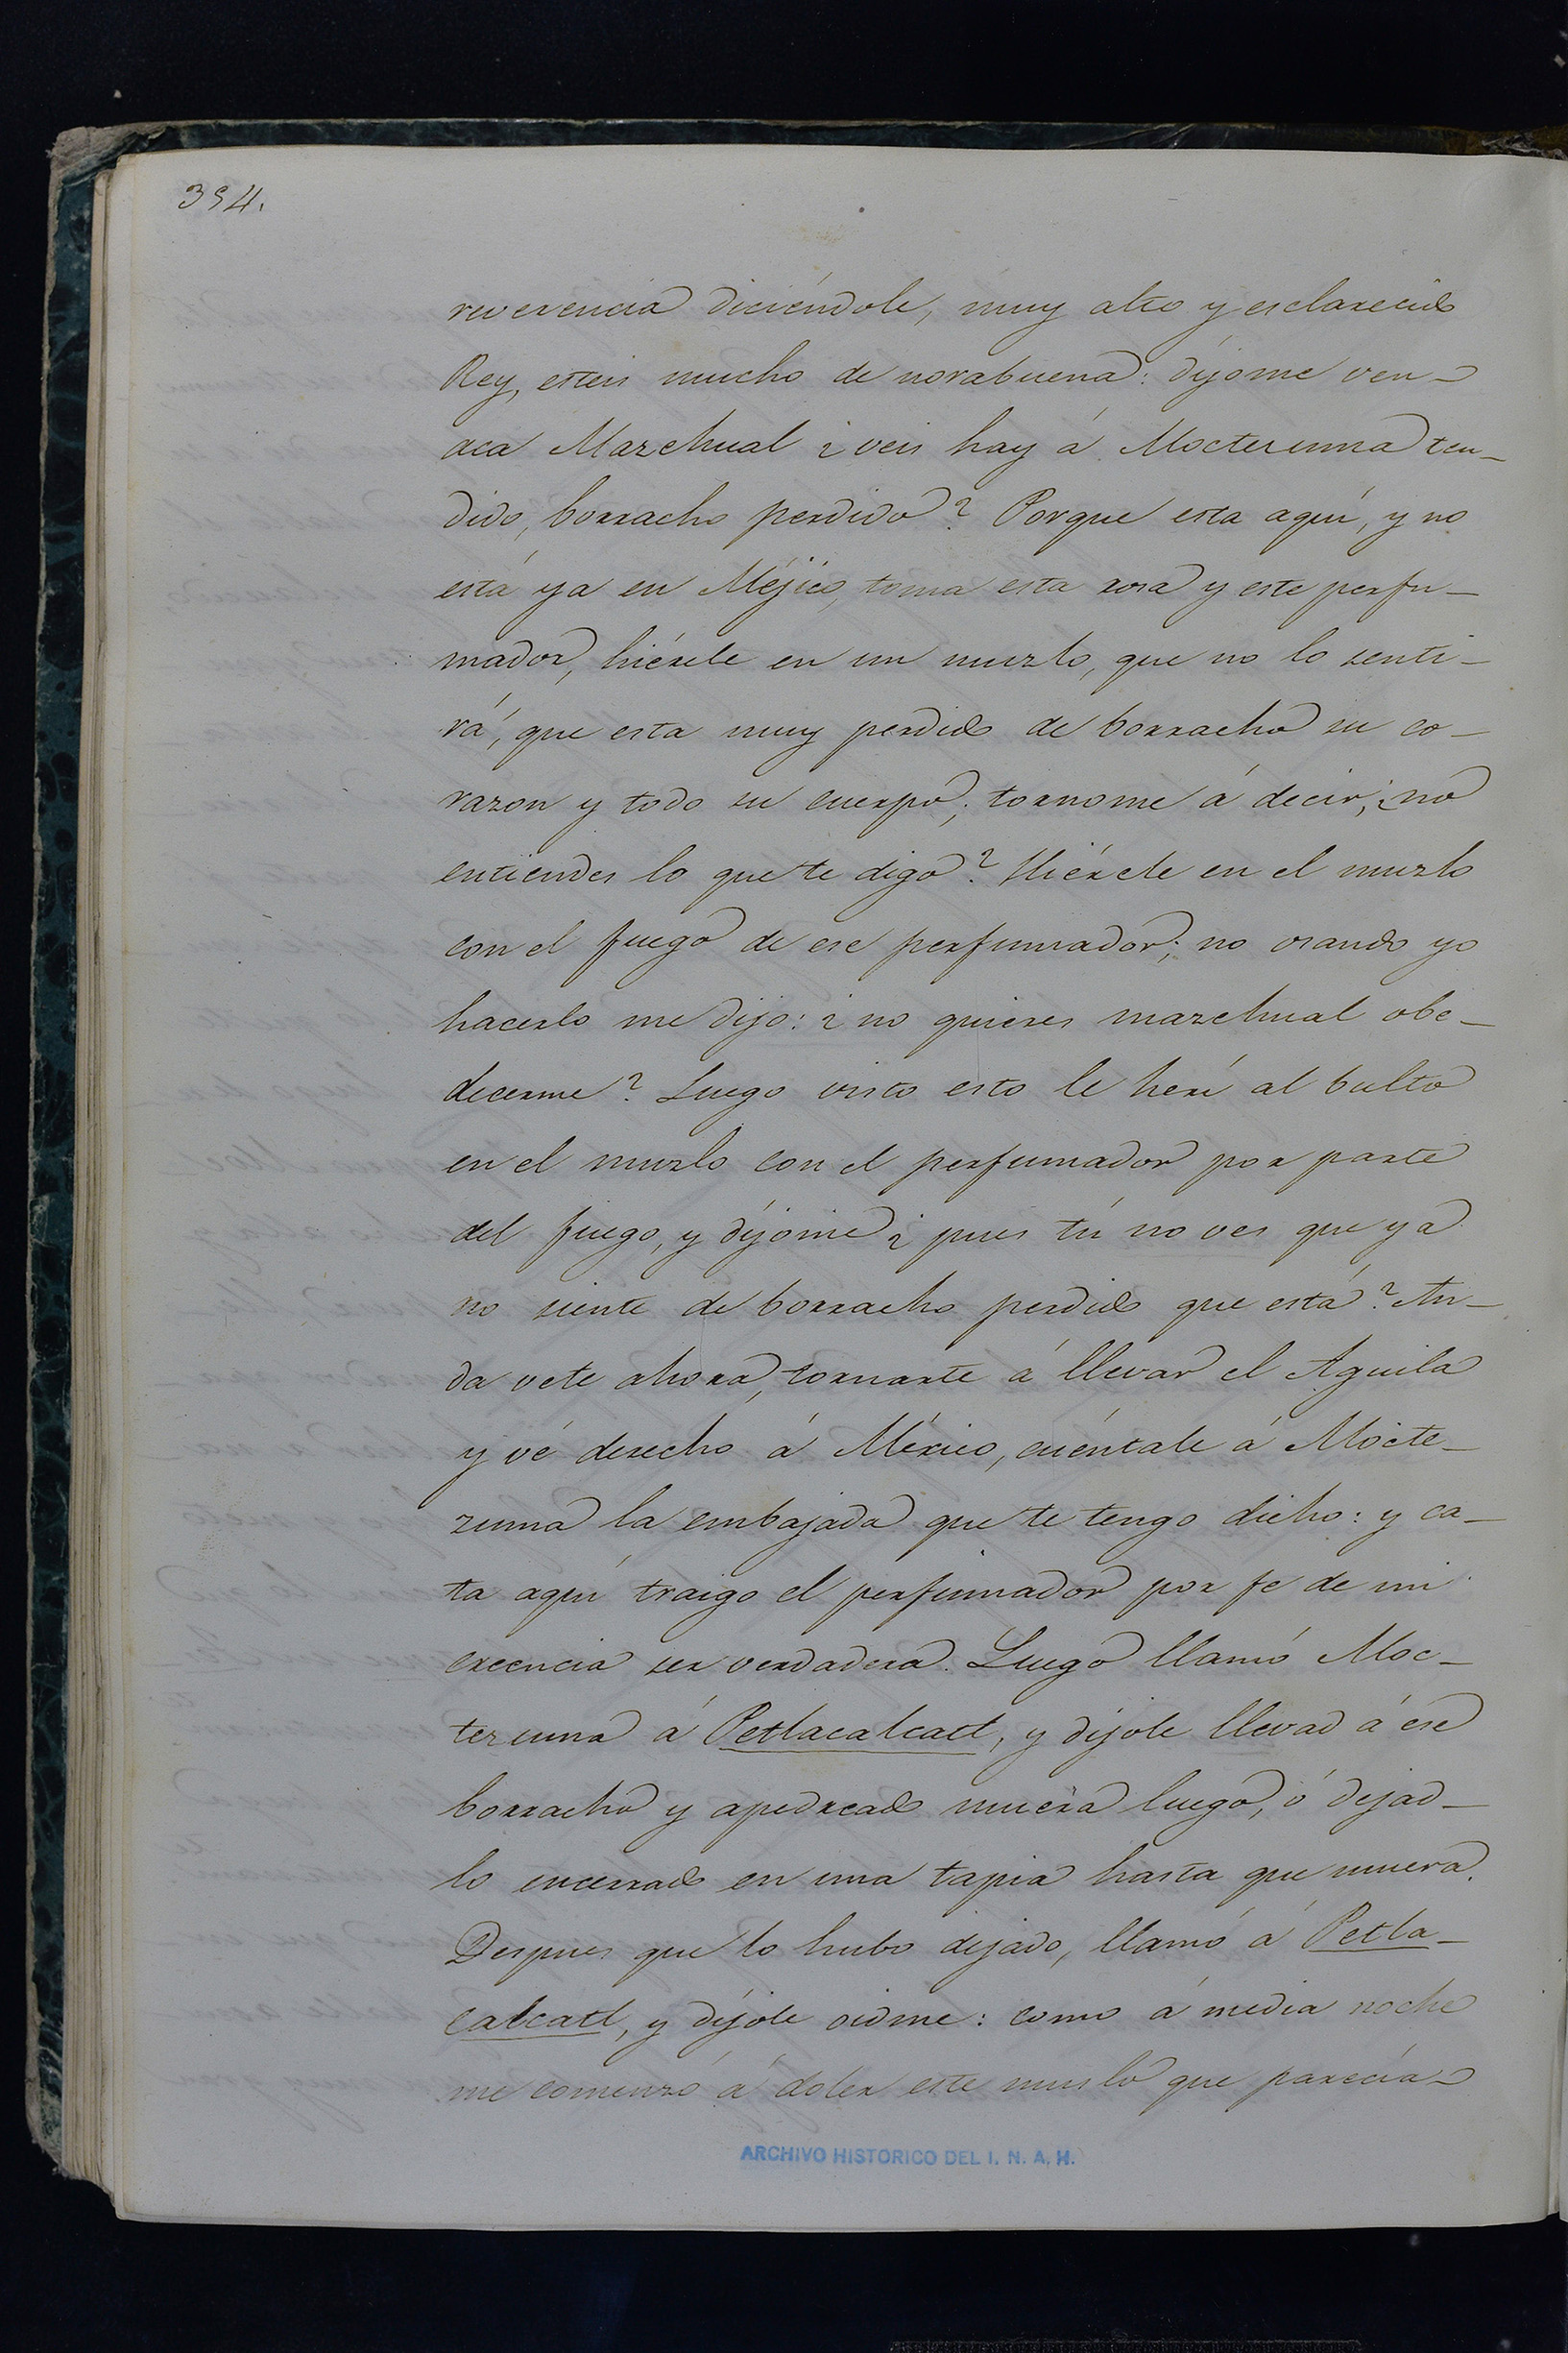 394.
reverencia diciéndole, muy alto y esclarecido
Rey, esteis mucho de norabuena: díjome ven
aca Mazehual ¿veis hay á Moctezuma ten-
dido, borracho perdido? Porque esta aquí, y no
está ya en Méjico, toma esta rosa y este perfu-
mador, hiérele en un muzlo, que no lo senti-
rá, que esta muy perdido de borracho su co-
razon y todo su cuerpo; tornome á decir, ¿no
entiendes lo que te digo? Hiérele en el muzlo
con el fuego de ese perfumador; no osando yo
hacerlo me dijo: ¿no quieres mazehual obe-
decerme? Luego visto esto le herí al bulto
en el muzlo con el perfumador por parte
del fuego, y díjome ¿pues tú no ves que ya
no siente de borracho perdido que está? An-
da vete ahora, tornarte á llevar el Aguila
y vé derecho á México, cuéntale á Mocte-
zuma la embajada que te tengo dicho: y ca-
ta aquí traigo el perfumador por fe de mi
creencia ser verdadera. Luego llamó Moc-
tezuma á Petlacalcatl, y dijole llevad á ese
borracho y apedreado muera luego, ó dejad-
lo encerrado en una tapia hasta que muera.
Despues que lo hubo dejado, llamó á Petla-
calcatl, y díjole oidme: como á media noche
me comenzó á doler este muslo que parecía
ARCHIVO HISTORICO DEL I. N. A. H.